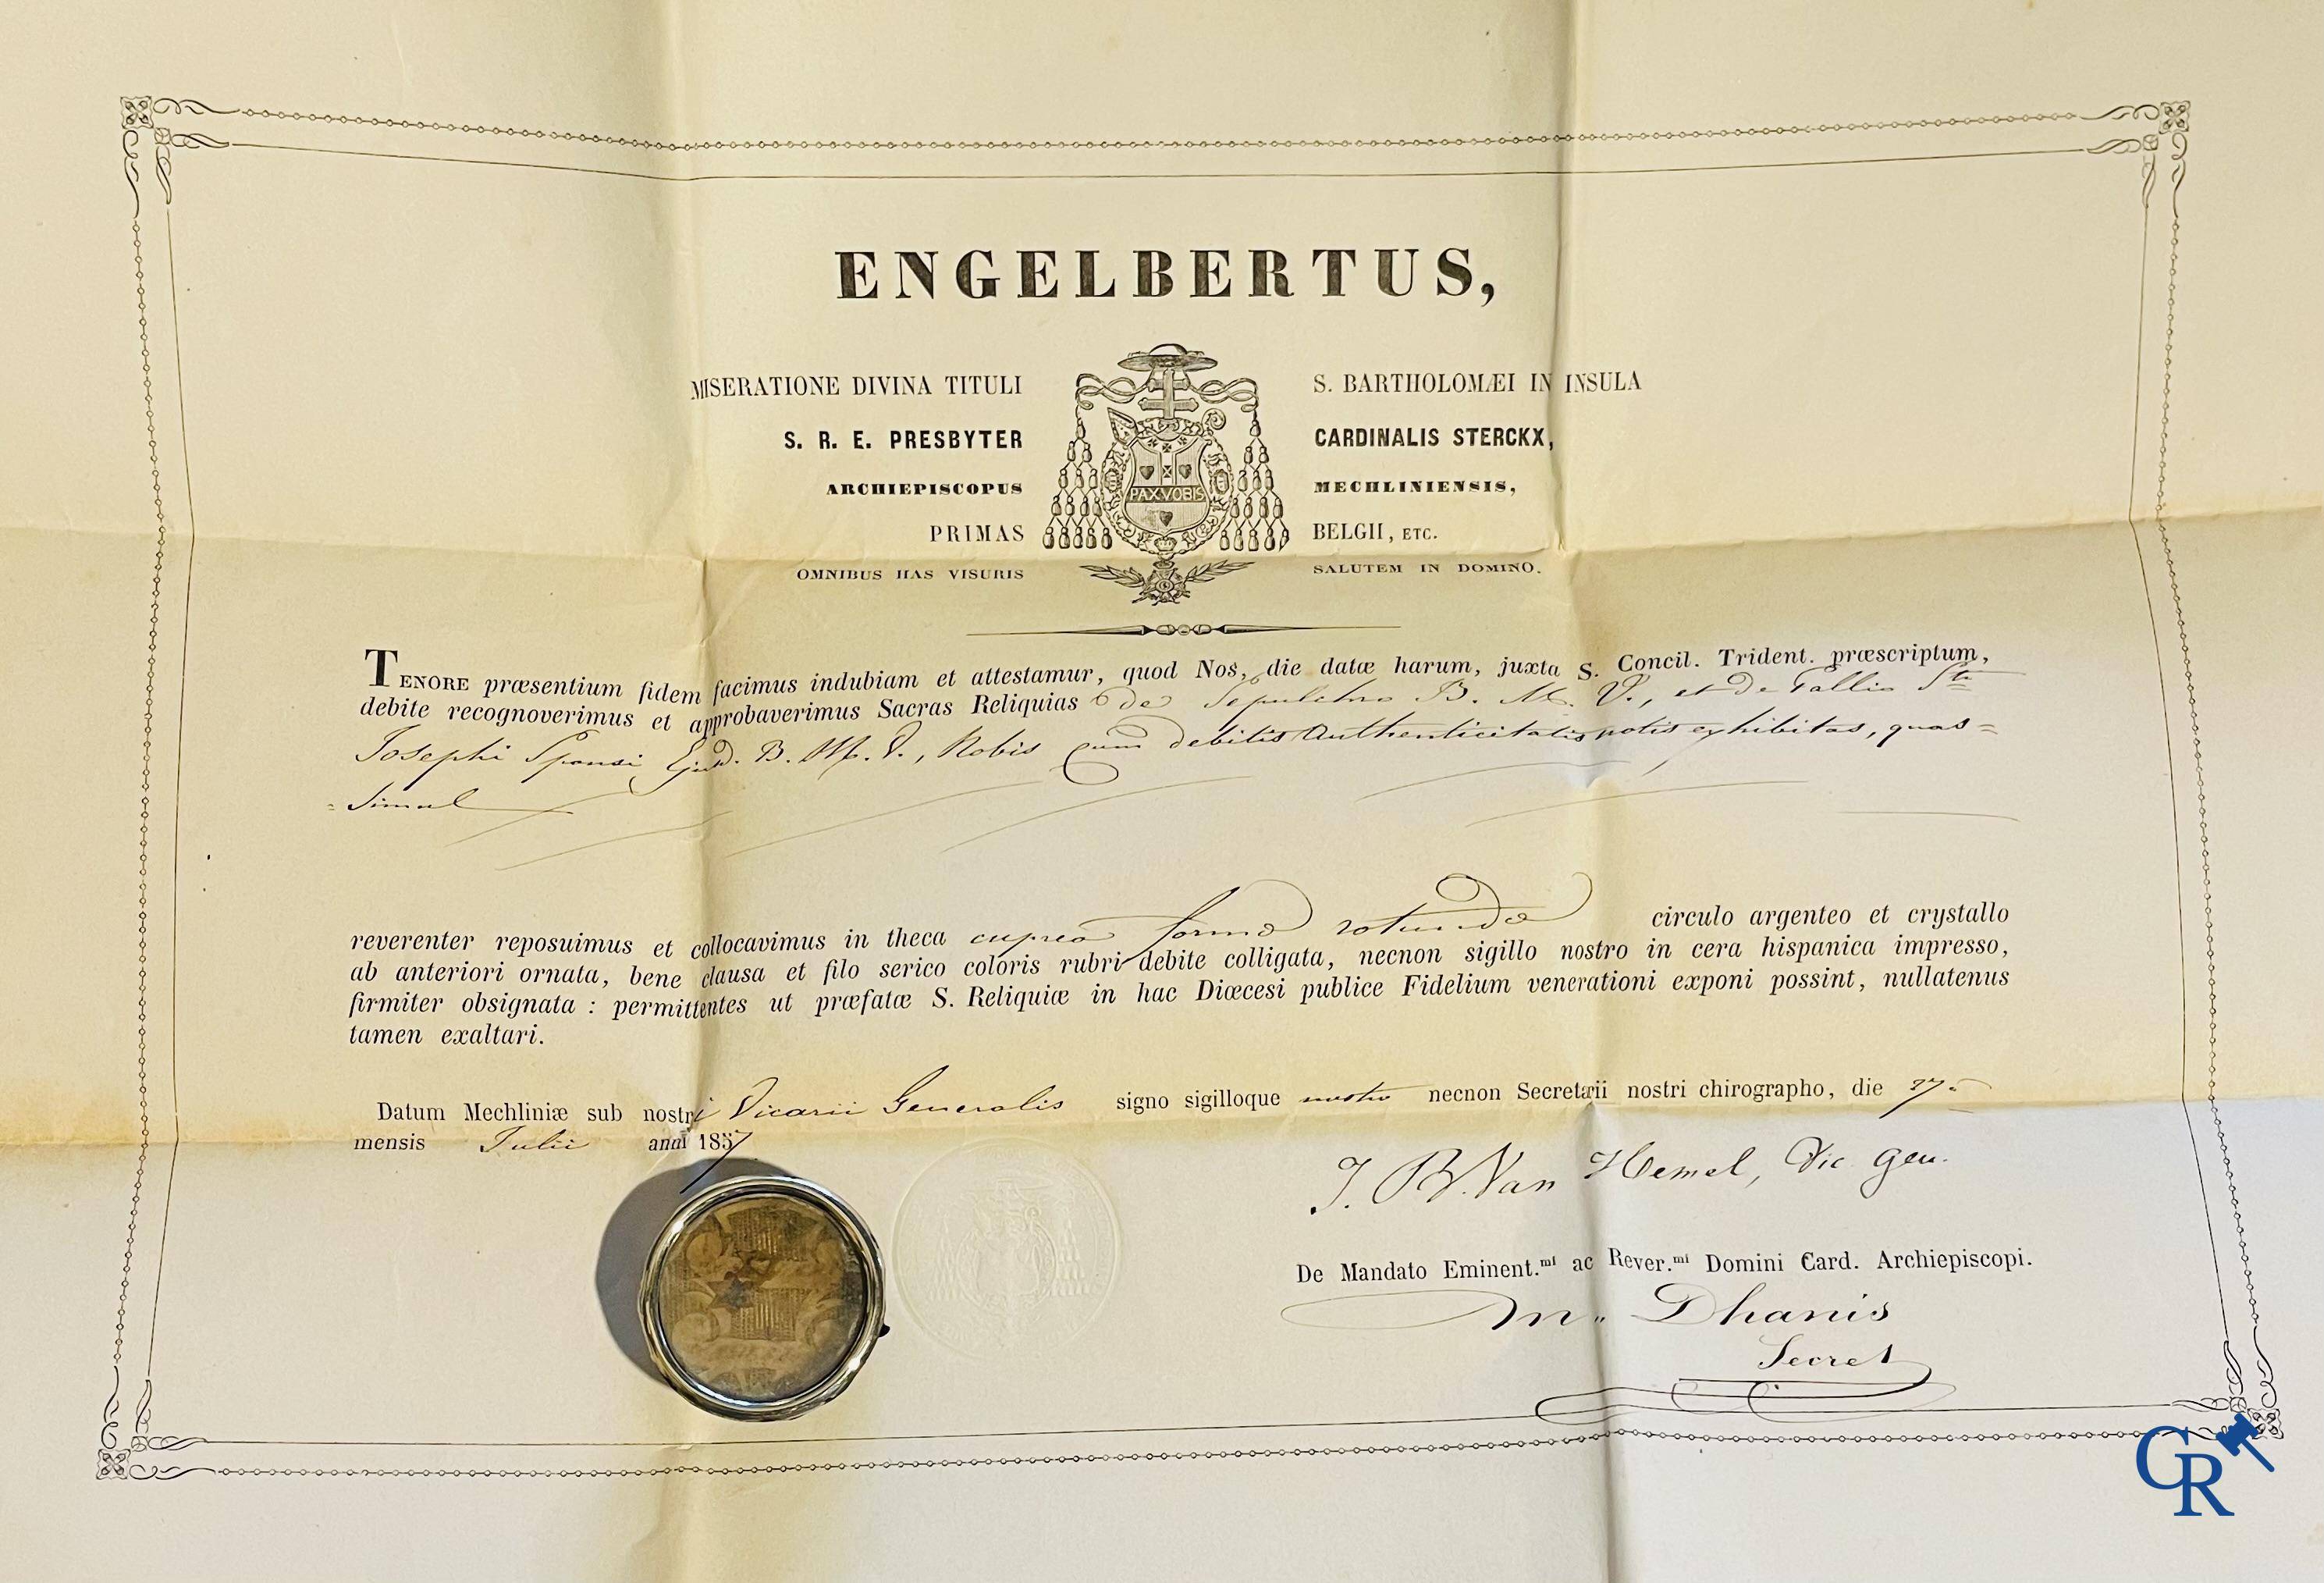 ENGELBERTUS,
MISERATIONE DIVINA TITULI S. BARTHOLOMÆI IN INSULA
S. R. E. PRESBYTER CARDINALIS STERCKX,
ARCHIEPISCOPUS MECHLINIENSIS,
PAX VOBIS
PRIMAS BELGII, ETC.
OMNIBUS HAS VISURIS SALUTEM IN DOMINO.
TENORE præsentium fidem facimus indubiam et attestamur, quod Nos, die datæ harum, juxta S. Concil. Trident. præscriptum,
debite recognoverimus et approbaverimus Sacras Reliquias de Sepulchro B. M. V., et de Pallio Sti
Josephi Sponsi Ejusd. B. M. V., Nobis cum debitis Authenticitatis notis exhibitas, quas=
=simul
reverenter reposuimus et collocavimus in theca cuprea formæ rotundæ circulo argenteo et crystallo
ab anteriori ornata, bene clausa et filo serico coloris rubri debite colligata, necnon sigillo nostro in cera hispanica impresso,
firmiter obsignata : permittentes ut præfatæ S. Reliquiæ in hac Diœcesi publice Fidelium venerationi exponi possint, nullatenus
tamen exaltari.
Datum Mechliniæ sub nostri Vicarii Generalis signo sigilloque nostro necnon Secretarii nostri chirographo, die 27a
mensis Julii anni 1857
J. B. Van Hemel, Vic. gen.
De Mandato Eminent.mi ac Rever.mi Domini Card. Archiepiscopi.
m. Dhanis
Secret
CR